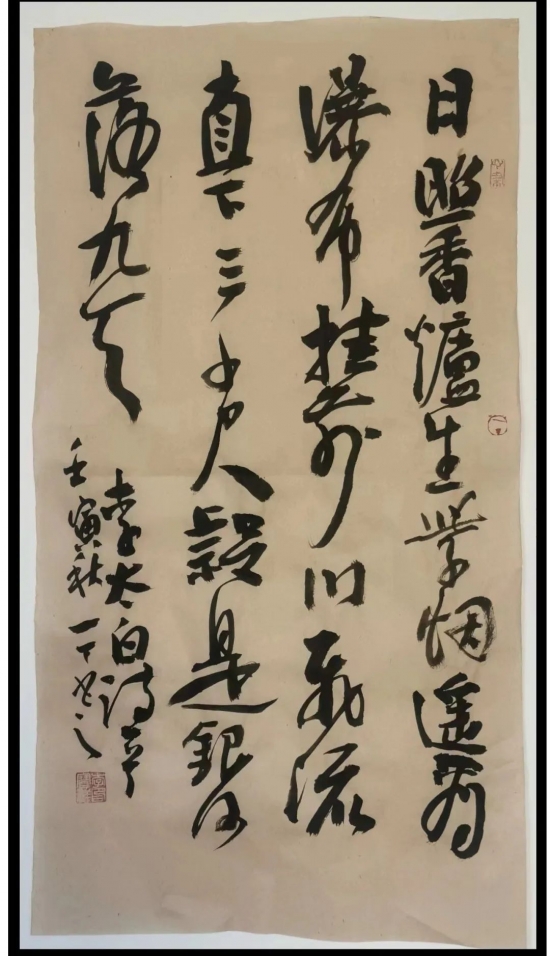 日照香爐生紫烟遥看
瀑布挂前川飛流
直下三千尺疑是銀河
落九天
李太白詩
壬寅秋一